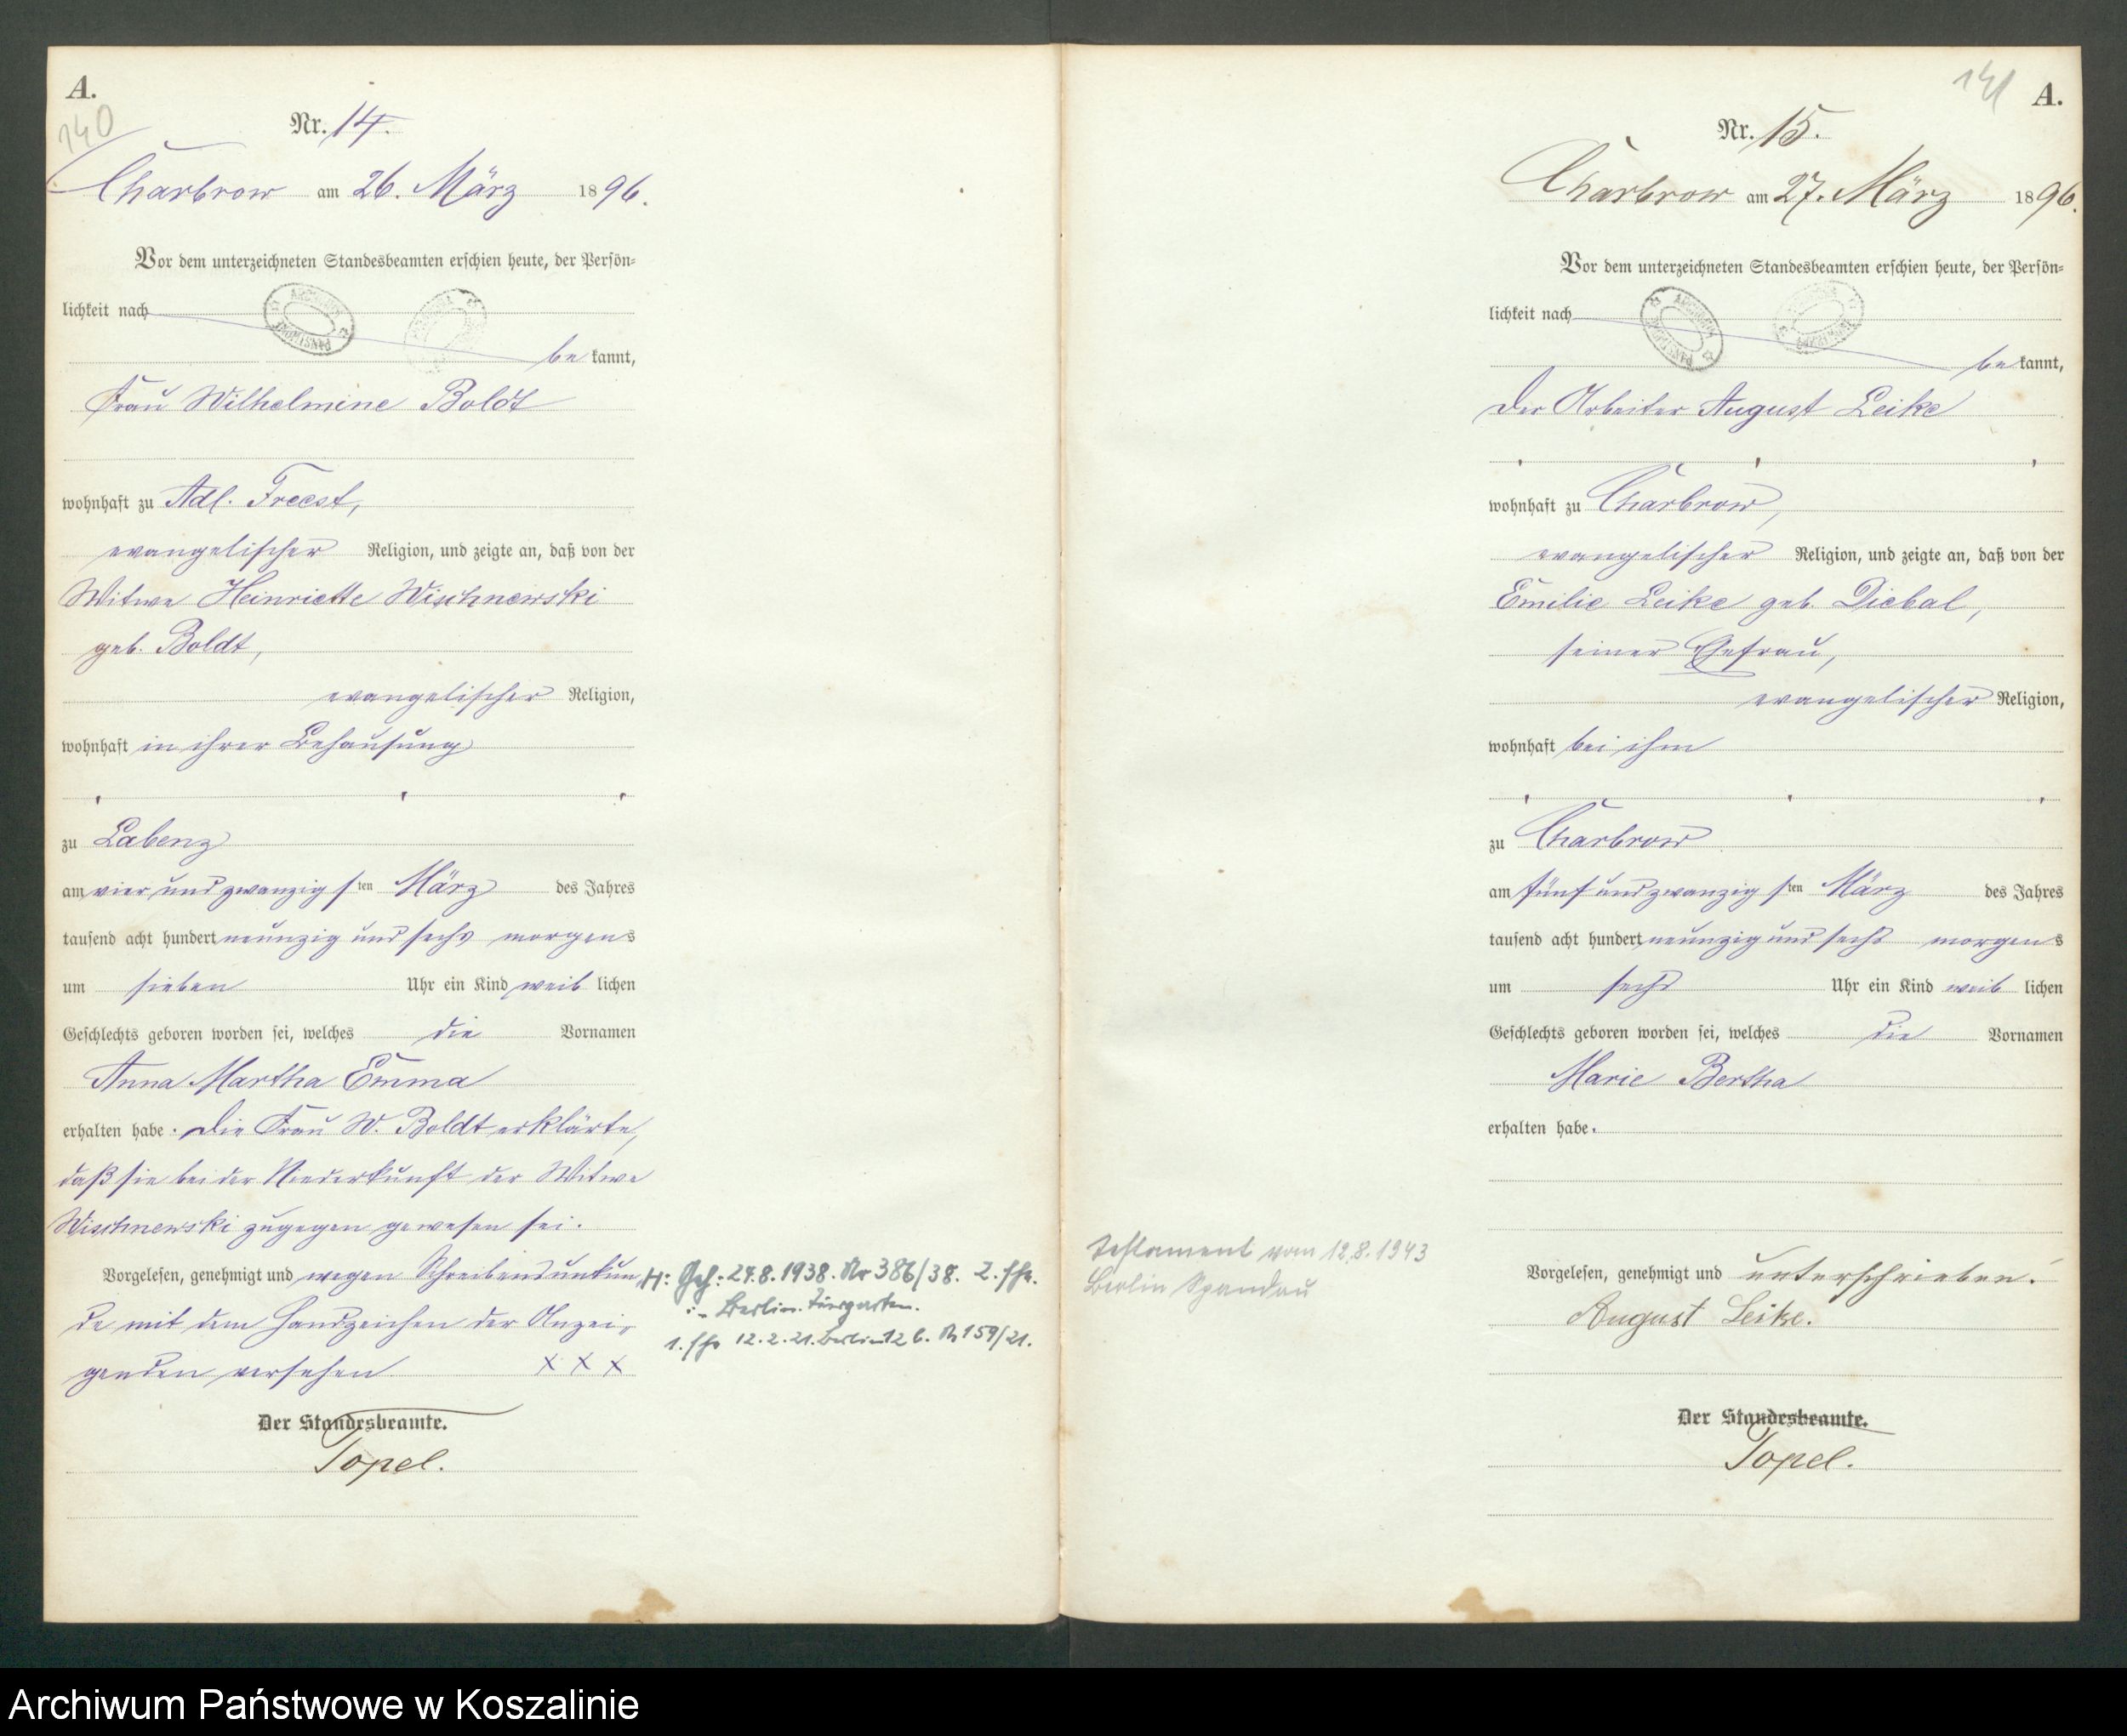 A.
140
Nr. 14.
Charbrow am 26. März 1896.
Vor dem unterzeichneten Standesbeamten erschien heute, der Persön=
lichkeit nach
be kannt,
Frau Wilhelmine Boldt
wohnhaft zu Adl. Freest,
evangelischer Religion, und zeigte an, daß von der
Witwe Heinriette Wischnewski
geb. Boldt,
evangelischer Religion,
wohnhaft in ihrer Behausung
zu Labenz
am vier und zwanzigsten März des Jahres
tausend acht hundert neunzig und sechs morgens
um sieben Uhr ein Kind weiblichen
Geschlechts geboren worden sei, welches die Vornamen
Anna Martha Emma
erhalten habe. Die Frau W. Boldt erklärte,
daß sie bei der Niederkunft der Witwe
Wischnewski zugegen gewesen sei.
Vorgelesen, genehmigt und wegen Schreibensunkun
de mit dem Handzeichen der Anzei-
genden versehen x x x
Der Standesbeamte.
Topel.
H: Geh: 27.8.1938. Nr 386/38. 2. Ehe.
Berlin Tiergarten.
1. Ehe 12.2.21. Berlin 12 b. Nr 159/21.
141
A.
Nr. 15.
Charbrow am 27. März 1896.
Vor dem unterzeichneten Standesbeamten erschien heute, der Persön=
lichkeit nach
be kannt,
Der Arbeiter August Leike
wohnhaft zu Charbrow,
evangelischer Religion, und zeigte an, daß von der
Emilie Leike geb. Diebal,
seiner Ehefrau,
evangelischer Religion,
wohnhaft bei ihm
zu Charbrow
am fünf und zwanzigsten März des Jahres
tausend acht hundert neunzig und sechs morgens
um sechs Uhr ein Kind weiblichen
Geschlechts geboren worden sei, welches die Vornamen
Marie Bertha
erhalten habe.
Testament vom 12.8.1943
Berlin Spandau
Vorgelesen, genehmigt und unterschrieben.
August Leike.
Der Standesbeamte.
Topel.
Archiwum Państwowe w Koszalinie